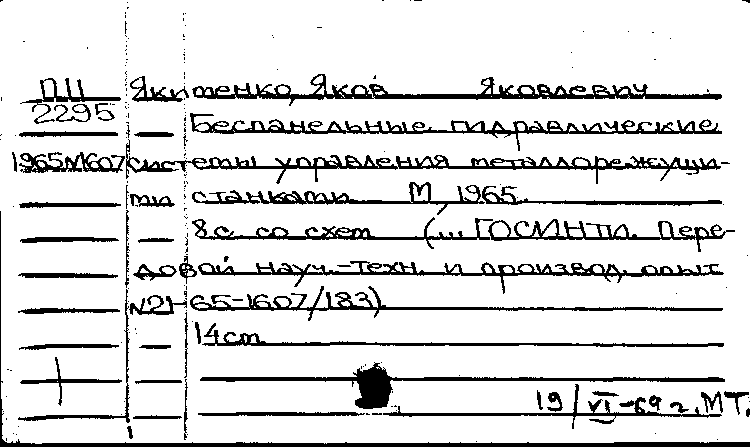 П.П Якименко, Яков Яковлевич
2295 Беспанельные гидравлические
1965 N1607 системы управления металлорежущи-
ми станками М, 1965.
8 с. со схем (... ГОСИНТИ. Пере-
довой науч.-техн. и производ. опыт
N21-65-1607/183)
14 ст
19/VI-69 г. МТ.